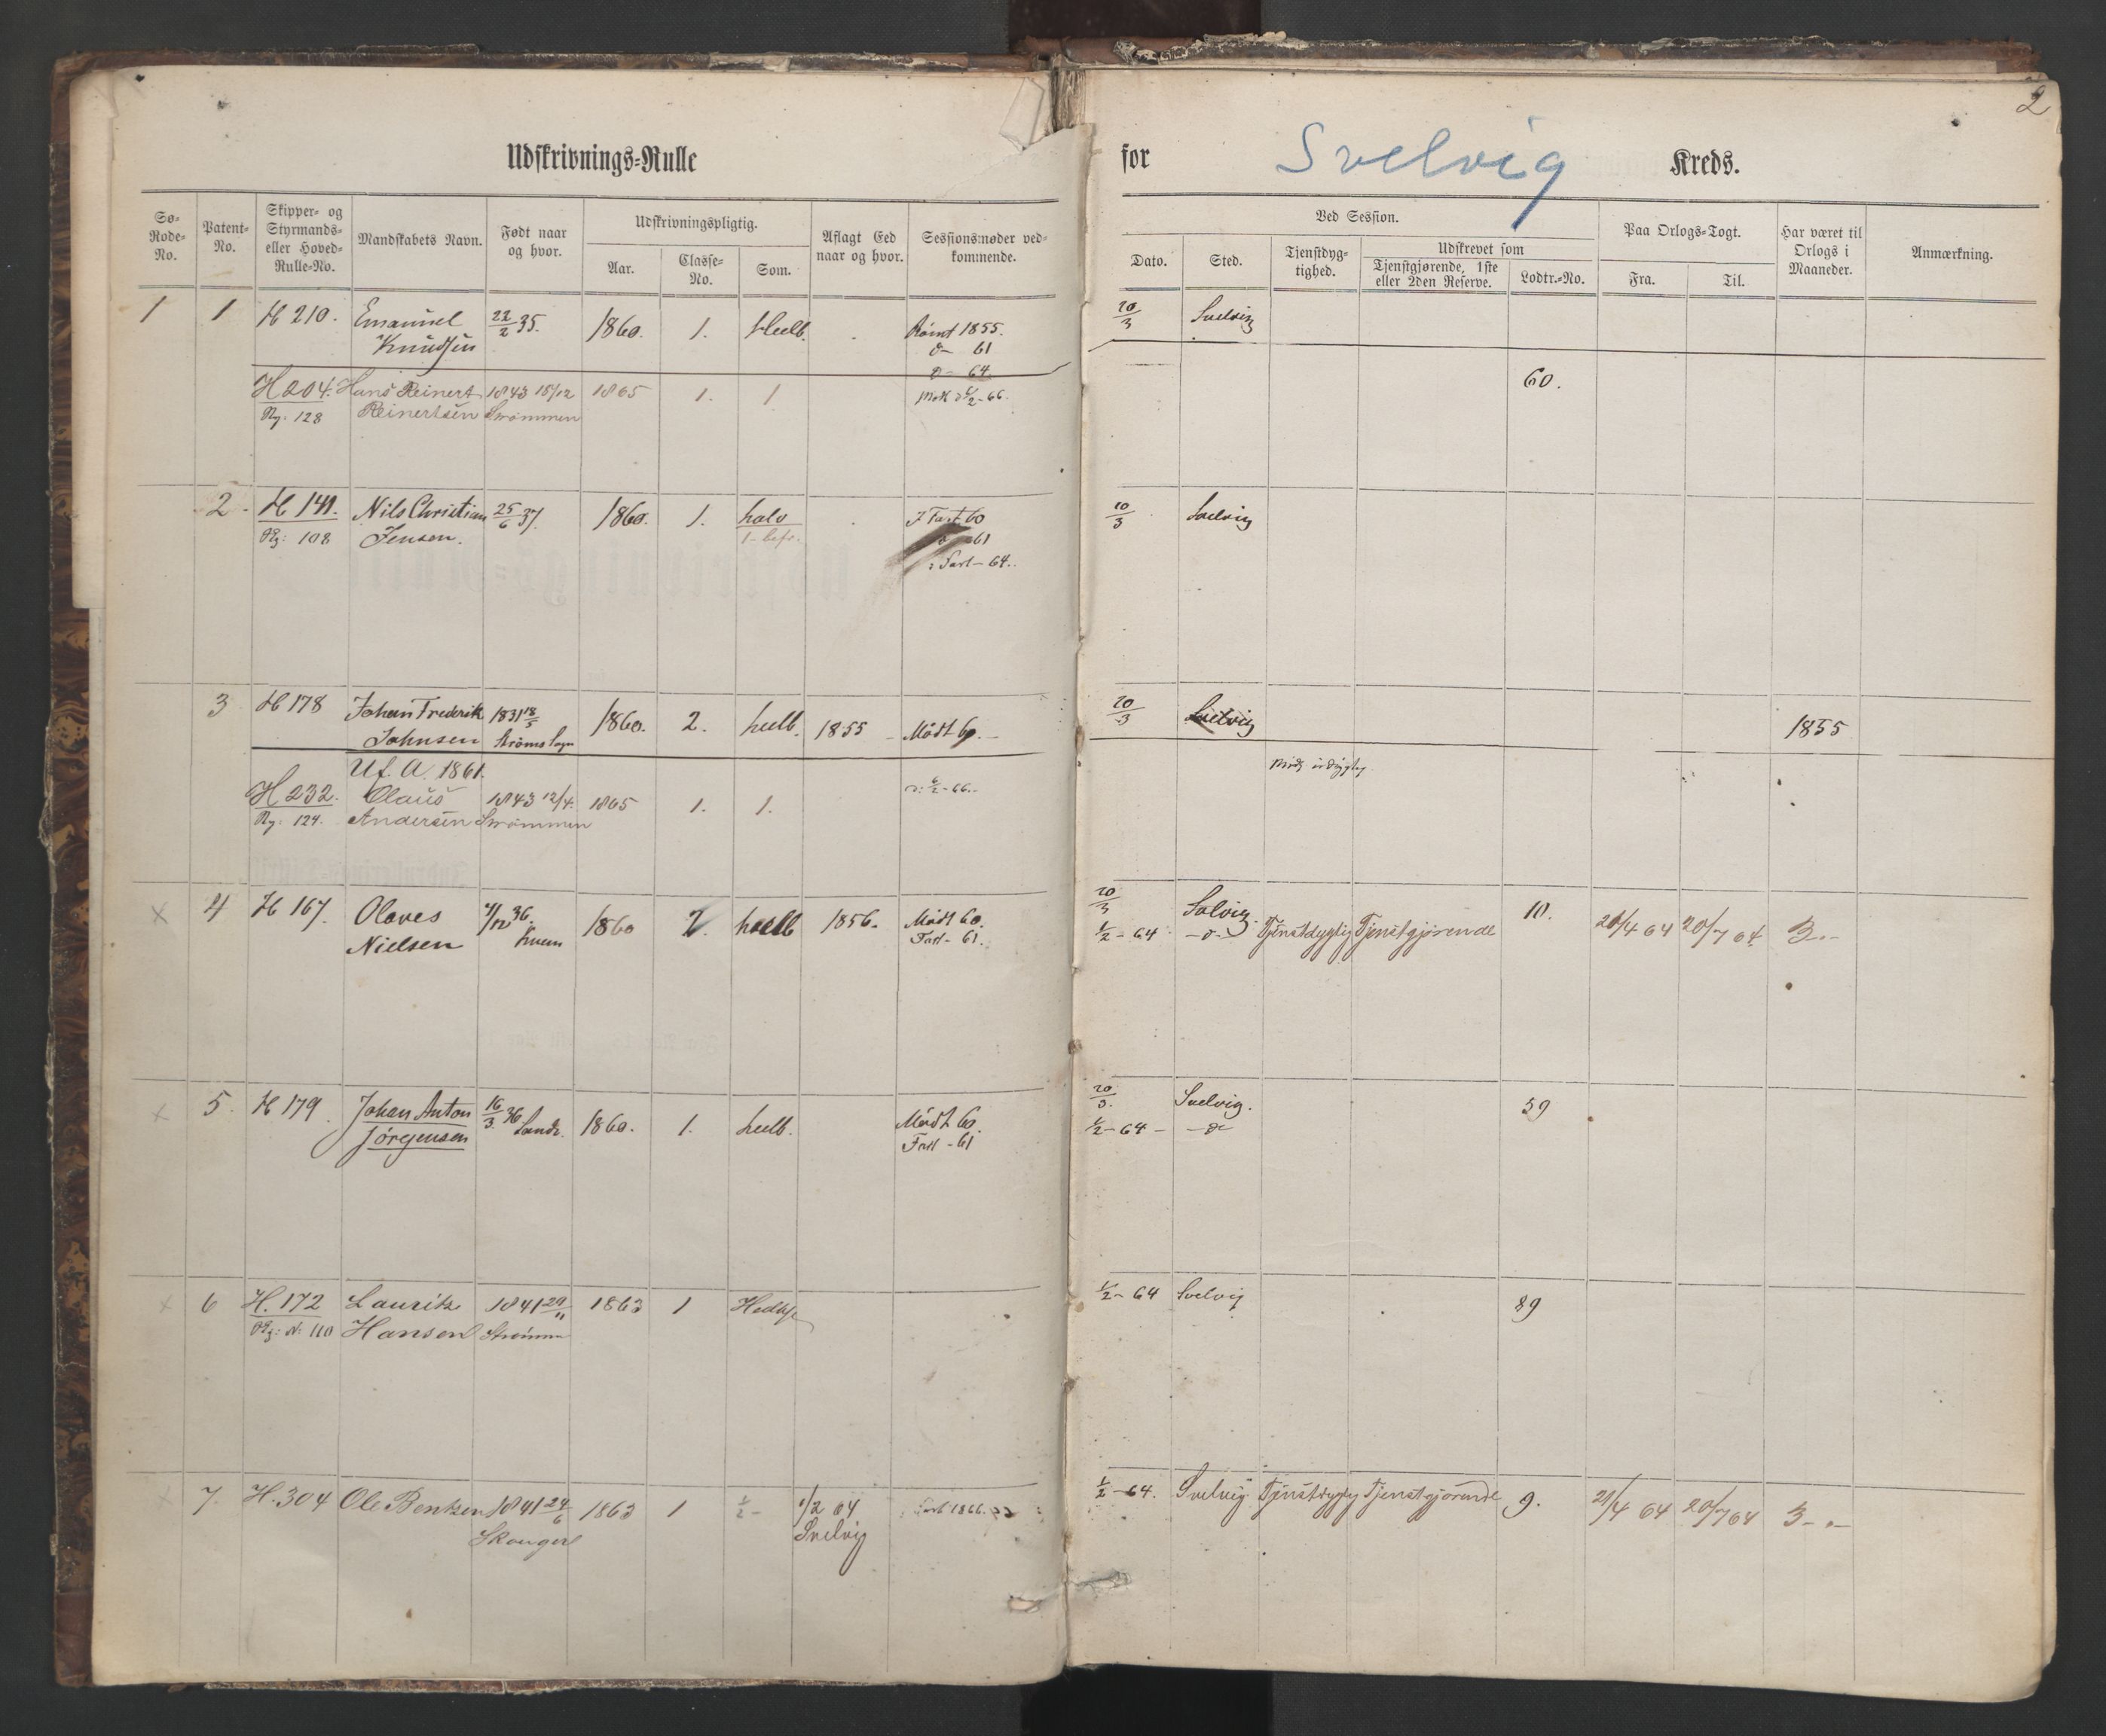 2
Udskrivnings-Rulle for Svelvig Kreds.
Sø-Rode-No.
Patent-No.
Skipper- og Styrmands- eller Hoved-Rulle-No.
Mandskabets Navn.
Født naar og hvor.
Udskrivningspligtig.
Aar.
Classe-No.
Som.
Aflagt Eed naar og hvor.
Sessionsmøder vedkommende.
Ved Session.
Dato.
Sted.
Tjenstdygtighed.
Udskrevet som
Tjenstgjørende, 1ste eller 2den Reserve.
Lodtr.-No.
Paa Orlogs-Togt.
Fra.
Til.
Har været til Orlogs i Maaneder.
Anmærkning.
1 1 H 210. Emanuel 22/2 35. 1860. 1. Heelb. Rømt 1855. 20/3 Svelvig
Knudsen d- 61
d- 64
H 204. Hans Reinert 1843 15/12 1865 1. 1 60.
Rg. 128 Reinertsen Strømmen
2 H 141. Nils Christian 25/6 37. 1860. 1. halv 60 20/3 Svelvig
Rg: 108 Jensen. 61
64.
3 H 178 Johan Frederik 1831 18/5 1860. 2. heelb. 1855 Mødt 60. 20/3 Svelvig 1855
Johnsen Strøms Sogn
U. f. A. 1861.
H 232. Olaus 1843 12/4. 1865 1. 1. 6/2-66.
Rg: 124. Andersen Strømmen
4 H 167. Olaves 4/12 36. 1860 2. heelb 1856. Mødt 60. 20/3 Solvig. 10.
Nielsen Forf- 61. 1/2-64 -d- Tjenstdygtig Tjenstgjørende 20/4 64 20/7 64 3.-
5. H 179. Johan Anton 16/3 36 1860. 1. heelb. Mødt 60. 20/3. Svelvig. 59
Jørgensen Sande. Forf - 61 1/2-64 - -d-
6 H. 172 Lauritz 1841 29/11 1863 1 1/2-64 Svelvig 89
Rg: N: 110 Hansen Strømm
7. H. 304 Ole Bentsen 1841 24/6 1863 1 1/2- 1/2 64 1866. 1/2-64. Svelvig Tjenstdygtig Tjenstgjørende 9. 21/4 64 20/7 64 3-.-
Skouger Svelvig